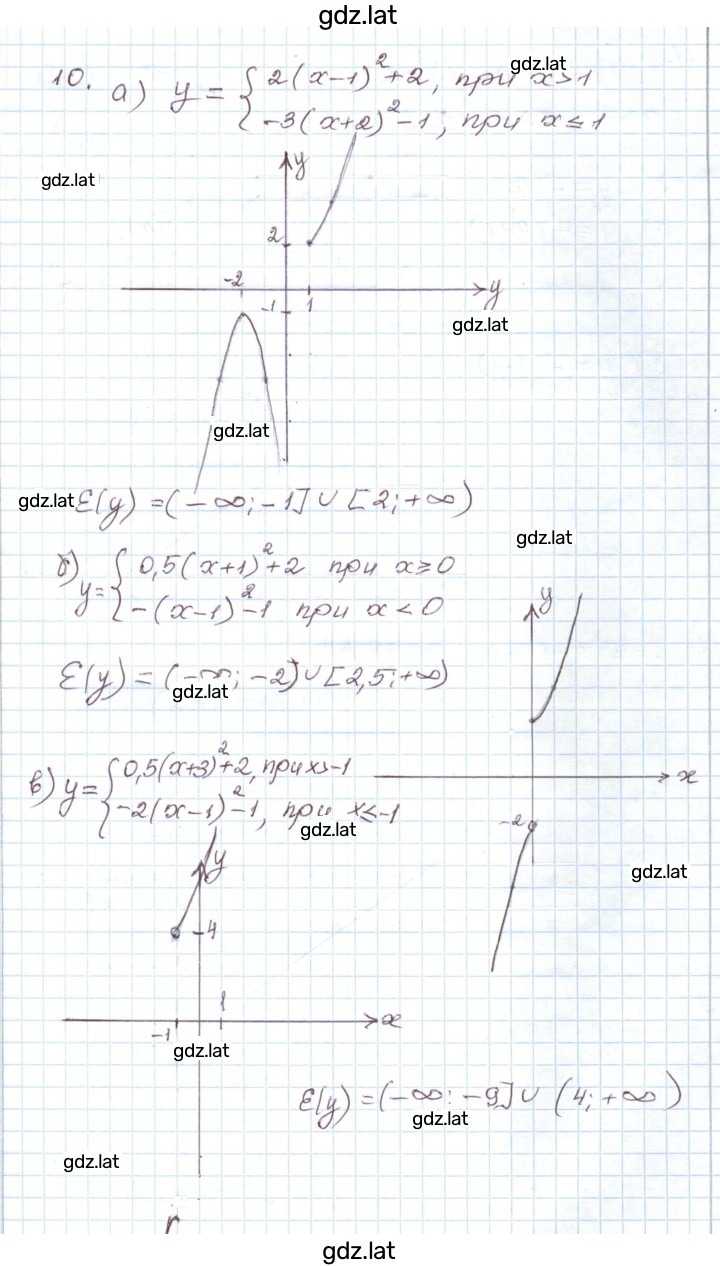 gdz.lat
gdz.lat
10. а) y = { 2(x-1)²+2, при x>1
-3(x+2)²-1; при x≤1
gdz.lat
y
2
-2
-1
1
y
gdz.lat
gdz.lat
gdz.lat
E(y) = (-∞; -1] ∪ [2; +∞)
gdz.lat
б) y= { 0,5(x+1)²+2 при x≥0
-(x-1)²-1 при x<0
y
E(y) = (-∞; -2) ∪ [2,5; +∞)
gdz.lat
в) y= { 0,5(x+3)²+2, при x>-1
-2(x-1)²-1, при x≤-1
x
-2
gdz.lat
gdz.lat
y
4
1
-1
x
gdz.lat
E(y) = (-∞; -9] ∪ (4; +∞)
gdz.lat
gdz.lat
gdz.lat